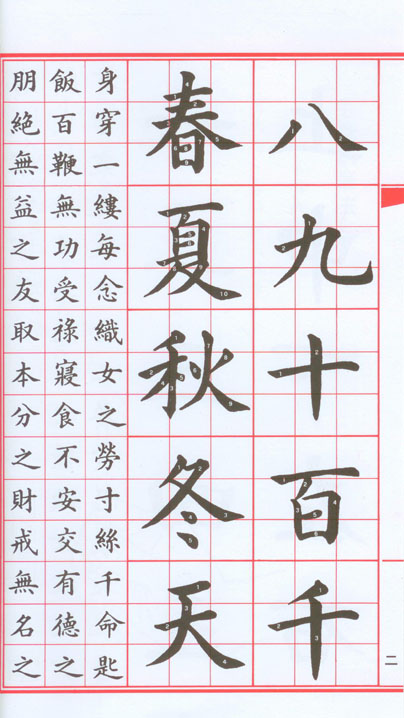 八九十百千
春夏秋冬天
身穿一縷每念織女之勞寸絲千命匙
飯百鞭無功受祿寢食不安交有德之
朋絕無益之友取本分之財戒無名之
二